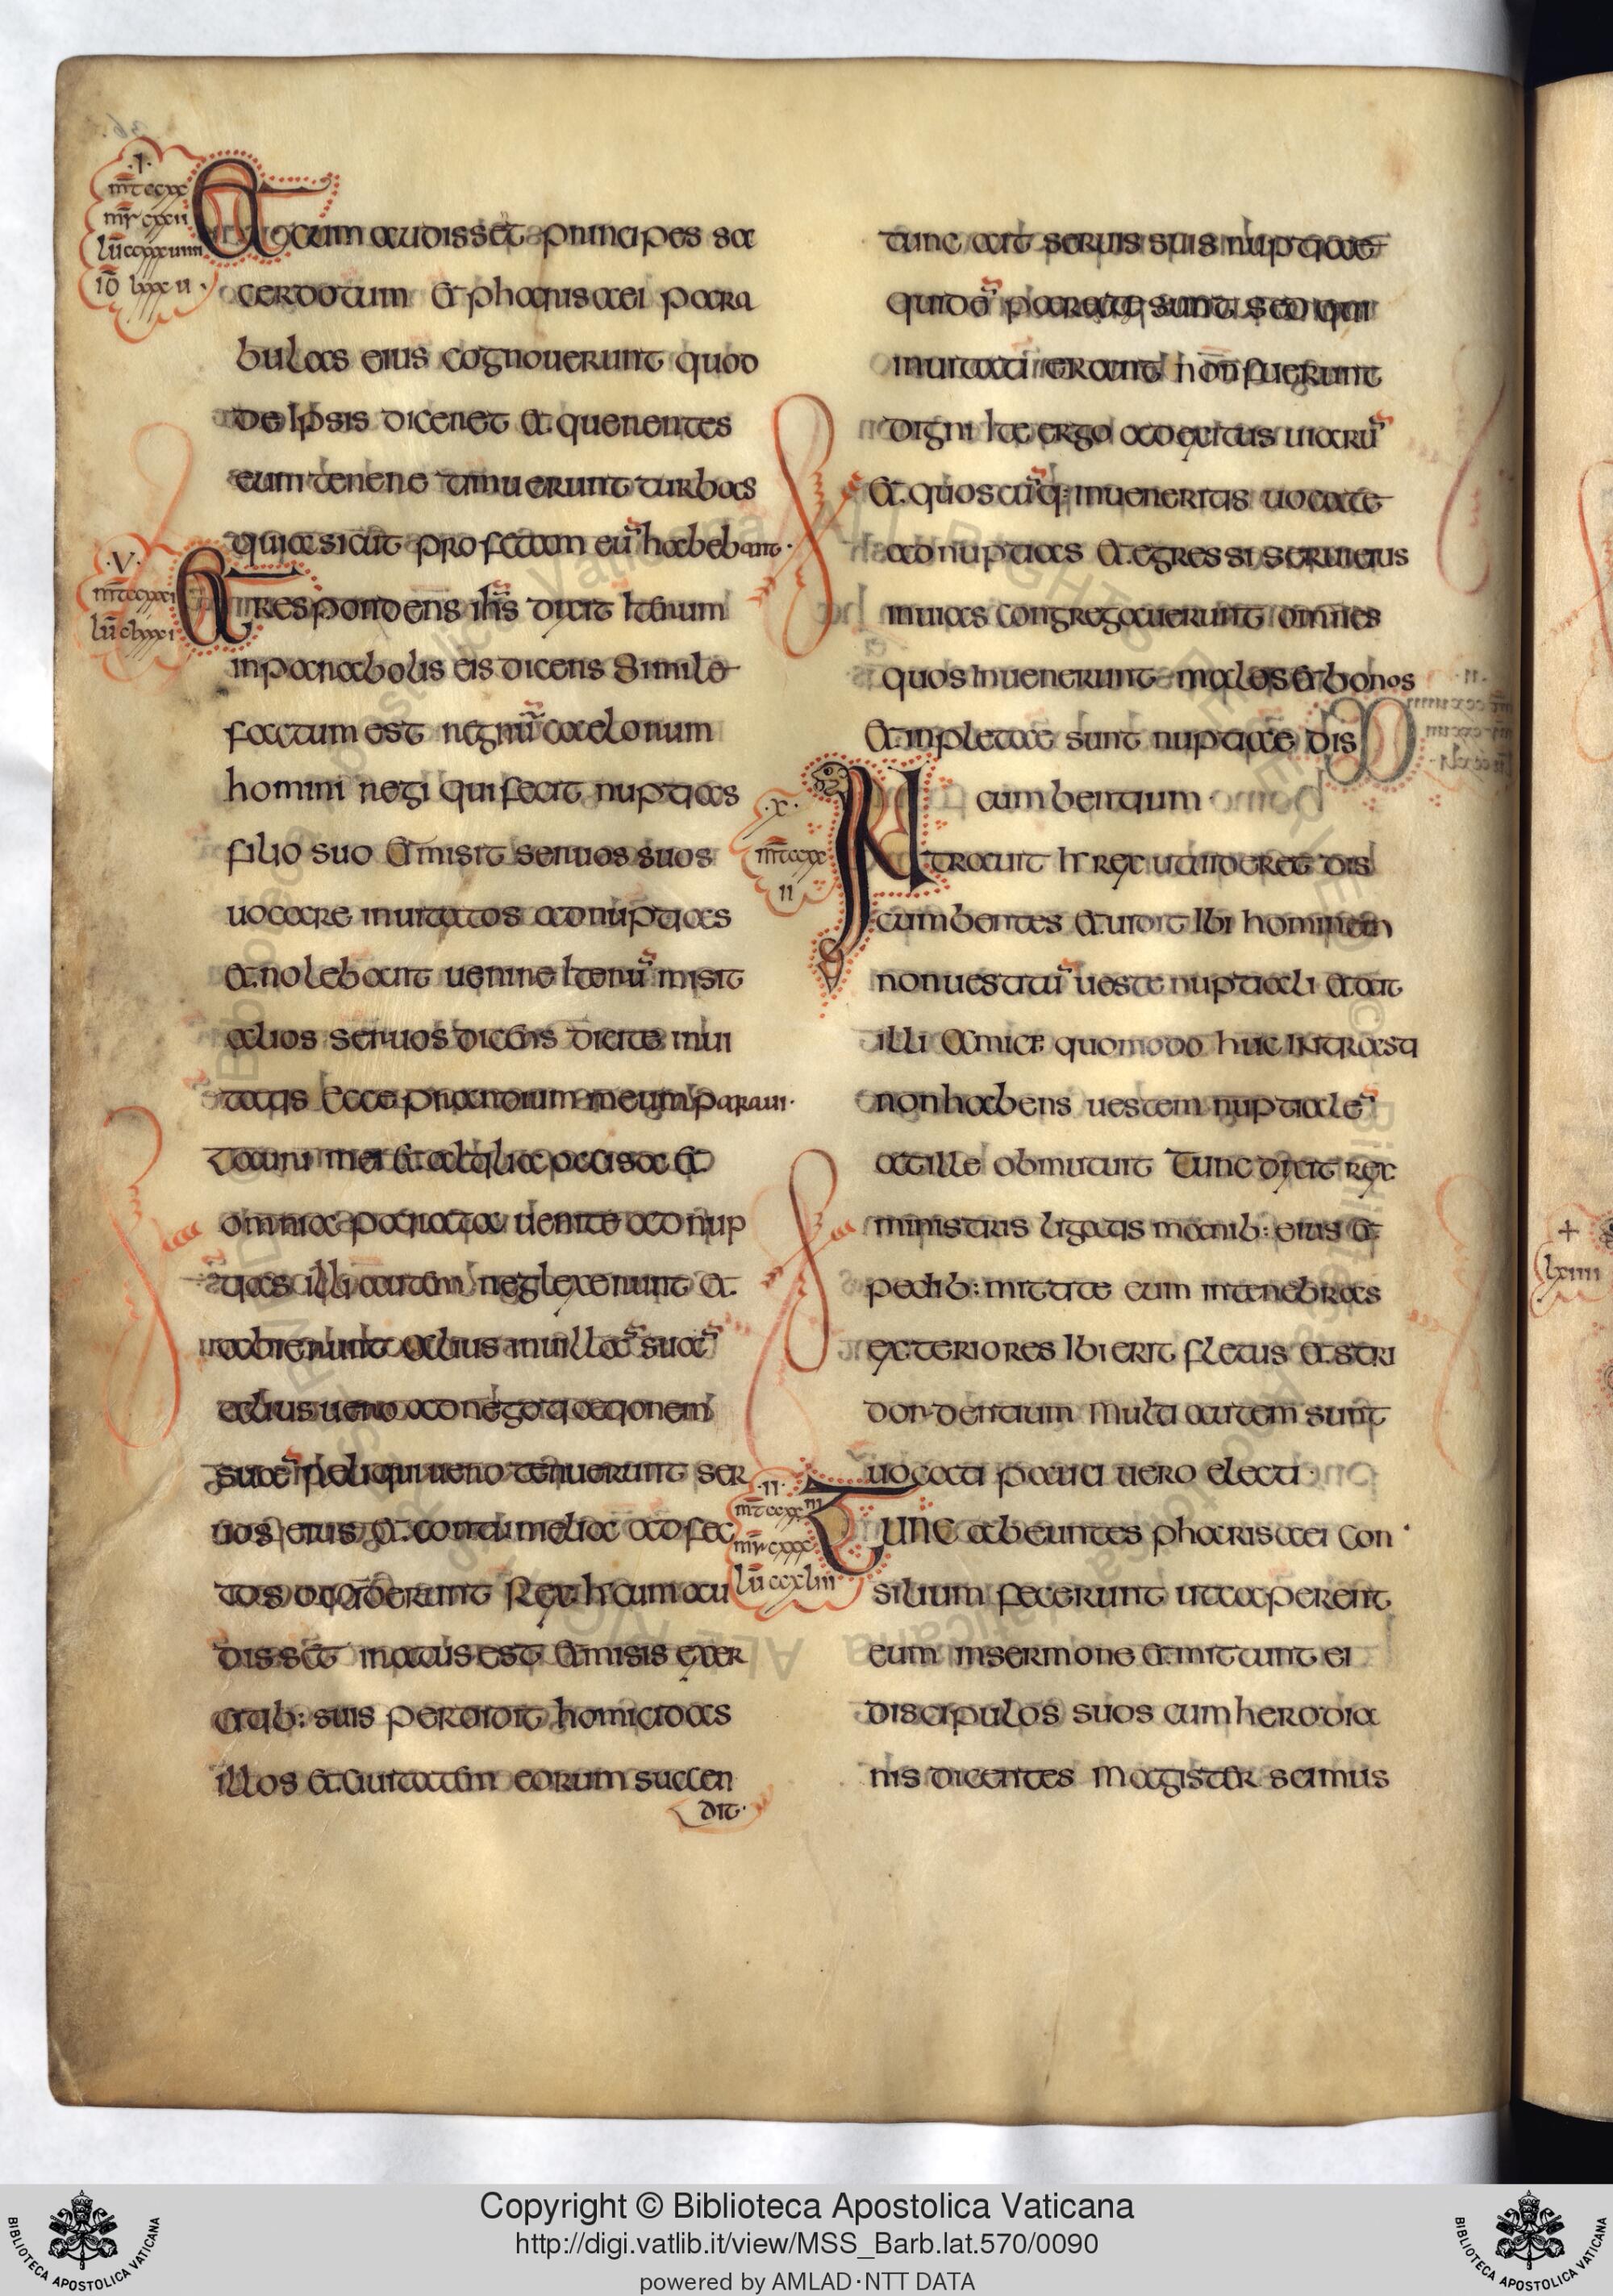 ·I·
mt̄ ccxx
mr̄ cxxii
lū ccxxxuiiii
iō lxxxu·
Et cum audisset principes sa
cerdotum et pharisaei para
bulas eius cognouerunt quod
de ipsis diceret et querentes
eum tenere timuerunt turbas
quia sicut profetam eū habebant·
·V·
mt̄ ccxxi
lū clxxxi
Et respondens ihs̄ dixit iterum
in parabolis eis dicens Simile
factum est regnū caelorum
homini regi qui fecit nuptias
filio suo et misit seruos suos
uocare inuitatos ad nuptias
et nolebant uenire iterū misit
alios seruos dicens dicite inui
tatis ecce prandium meum paraui·
tauri mei et altilia occisa et
omnia parata uenite ad nup
tias illi autem neglexerunt et
abierunt alius in uillā suā
alius uero ad negotiationem
suā reliqui uero tenuerunt ser
uos eius et contumelia adfec
tos occiderunt Rex h cum au
disset iratus est et misis exer
citib: suis perdidit homicidas
illos et ciuitatem eorum succen
dit·
tunc ait seruis suis nuptiae
quidē paratae sunt sed qui
inuitati erant non fuerunt
digni ite ergo ad exitus uiarū
et quoscūq; inueneritis uocate
ad nuptias et egressi serui eius
in uias congregauerunt omnes
quos inuenerunt malos et bonos
et inpletae sunt nuptiae dis
cumbentium
·X·
mt̄ ccxx
ii
INtrauit h rex ut uideret dis
cumbentes et uidit ibi hominem
non uestitū ueste nuptiali et ait
illi Amice quomodo huc intrasti
non habens uestem nuptialē
at ille obmutuit Tunc dixit rex
ministris ligatis manib: eius et
pedib: mittite eum in tenebras
exteriores ibi erit fletus et stri
dor dentium Multi autem sunt
uocati pauci uero electi·
·II·
mt̄ ccxxiii
mr̄ cxxx
lū ccxliii
Tunc abeuntes pharisaei con
silium fecerunt ut caperent
eum in sermone et mittunt ei
discipulos suos cum herodia
nis dicentes Magister scimus
+
lxiiii
Copyright © Biblioteca Apostolica Vaticana
http://digi.vatlib.it/view/MSS_Barb.lat.570/0090
powered by AMLAD·NTT DATA
BIBLIOTECA APOSTOLICA VATICANA
BIBLIOTECA APOSTOLICA VATICANA